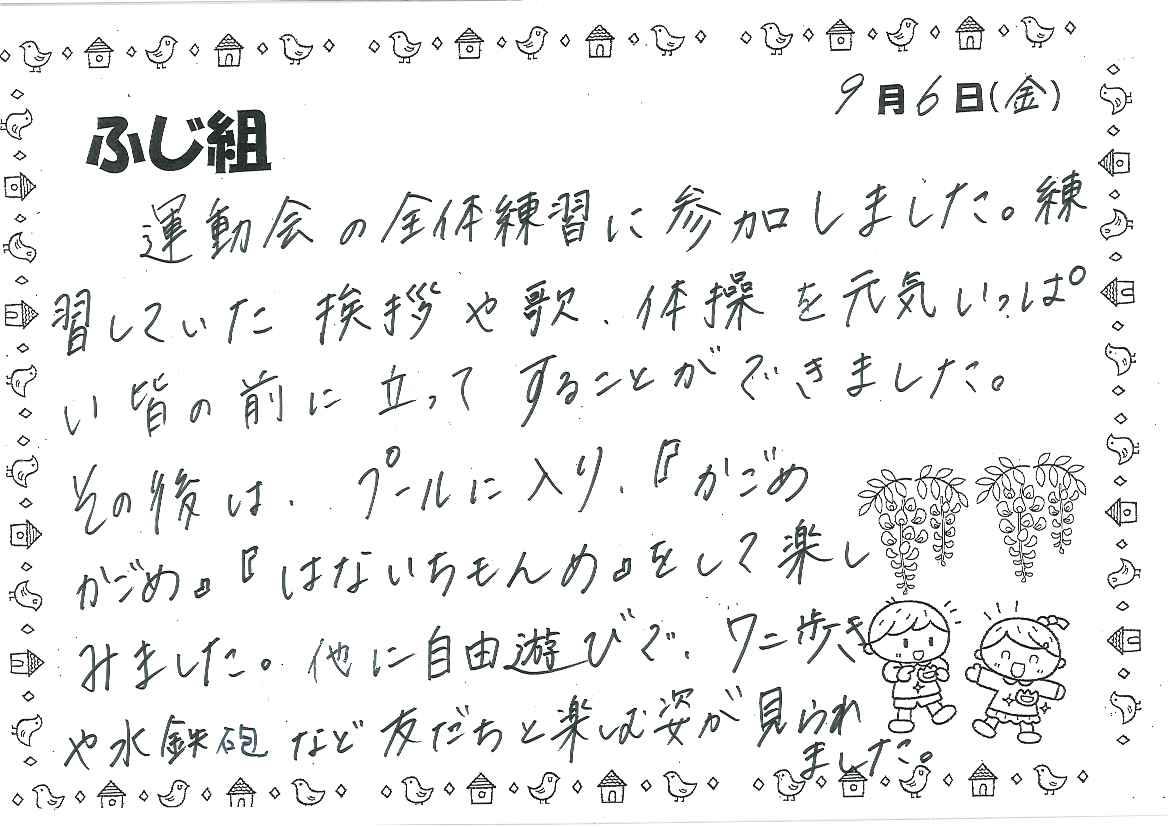 9月6日(金)
ふじ組
運動会の全体練習に参加しました。練
習していた挨拶や歌、体操を元気いっぱ
い皆の前に立ってすることができました。
その後は、プールに入り、『かごめ
かごめ』『はないちもんめ』をして楽し
みました。他に自由遊びで、ワニ歩き
や水鉄砲など友だちと楽しむ姿が見られ
ました。